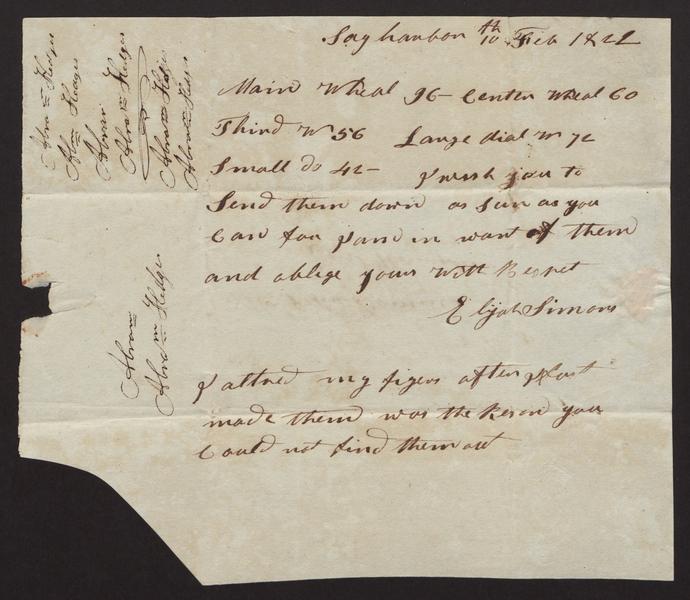 Sagharbor 10th Feb 1822
Main Wheal 96 - Center Wheal 60
Third W 56 Large dial W 72
Small do 42 - I wish you to
Send them down as Sun as you
Can for I am in want of them
and oblige yours With Respet
Elijah Simons
I altred my figers after I fast
made them was the Reson you
Could not find them out
Abram Hedges
Abm Hedges
Abram
Abram Hedges
Abram Hedges
Abram Hedges
Abram
Abram Hedges